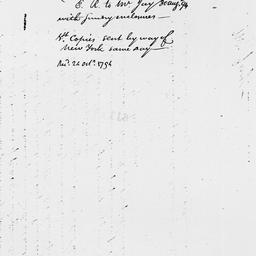 E. R. to Mr Jay 30 Aug. 94
with sundry enclosures
Nt. Copies sent by way of
New York same day
Recd. 24 Octr. 1794